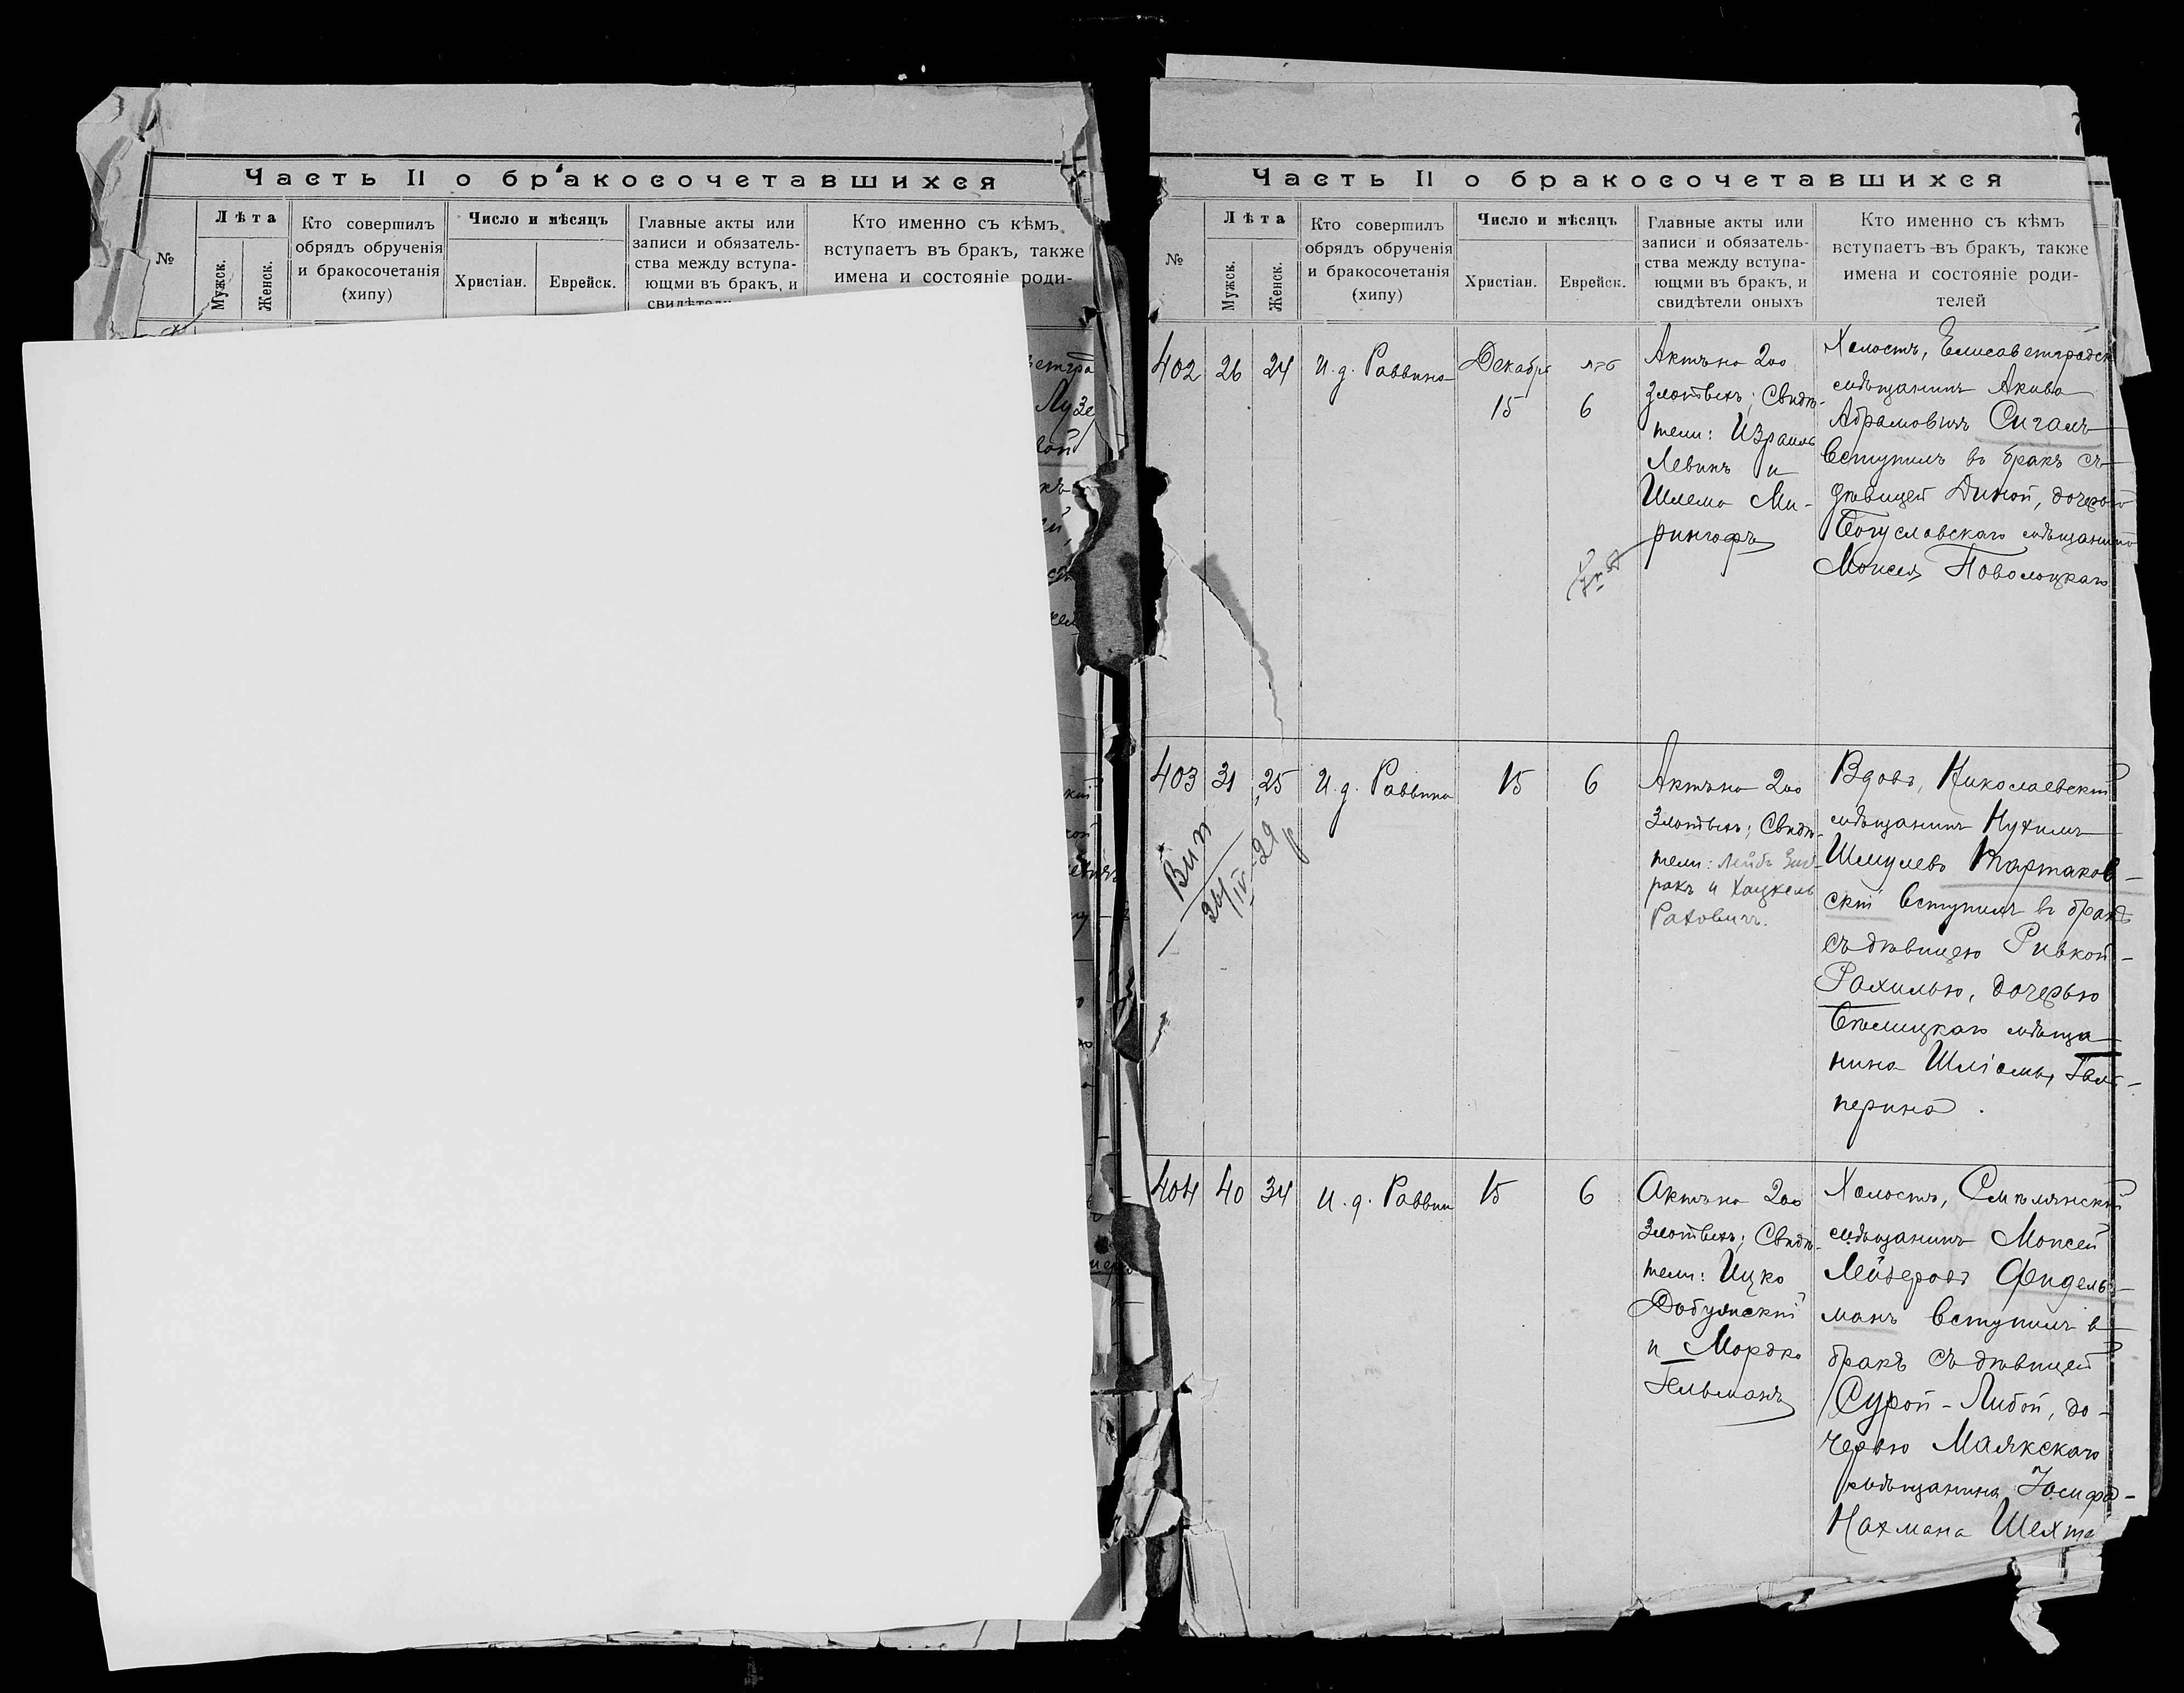 Часть II о бракосочетавшихся
№
Лѣта
Мужск.
Женск.
Кто совершилъ
обрядъ обрученія
и бракосочетанія
(хипу)
Число и мѣсяцъ
Христіан.
Еврейск.
Главные акты или
записи и обязатель-
ства между вступа-
ющми въ бракъ, и
Кто именно съ кѣмъ
вступаетъ въ бракъ, также
имена и состояніе роди-
Часть II о бракосочетавшихся
№
Лѣта
Мужск.
Женск.
Кто совершилъ
обрядъ обрученія
и бракосочетанія
(хипу)
Число и мѣсяцъ
Христіан.
Еврейск.
Главные акты или
записи и обязатель-
ства между вступа-
ющми въ бракъ, и
свидѣтели оныхъ
Кто именно съ кѣмъ
вступаетъ въ бракъ, также
имена и состояніе роди-
телей
402
26
24
И. д. Раввина
Декабря
15
6
Актъ на 200
злотыхъ; Свидѣ-
тели: Израиль
Левинъ и
Шлема Ми-
рингофъ
Холостъ, Елисаветградск
мѣщанинъ Акива
Абрамовичъ Сигалъ
вступилъ въ бракъ съ
дѣвицей Диной, дочерью
Богуславскаго мѣщанина
Моисея Поволоцкаго
403
31
25
И. д. Раввина
15
6
Актъ на 200
Злотыхъ; Свидѣ-
тели: Лейбъ
и Хацкель
Раховичъ.
Вдовъ, Николаевскій
мѣщанинъ Нухимъ
Шмулевъ Тартаков-
скій вступилъ въ бракъ
съ дѣвицею Ривкой-
Рахилью, дочерью
мѣща
нина Гал-
перина.
24/IV-29
404
40
34
И. д. Раввин
15
6
Актъ на 200
Злотыхъ; Свидѣ-
тели: Ицко
и Мордко
Гельманъ
Холостъ, Смѣлянскій
мѣщанинъ Моисей
Лейзеровъ Фидель-
манъ вступилъ въ
бракъ съ дѣвицей
Сурой-Либой, до-
черью Маякскаго
мѣщанина Іосифа-
Нахмана Шехте